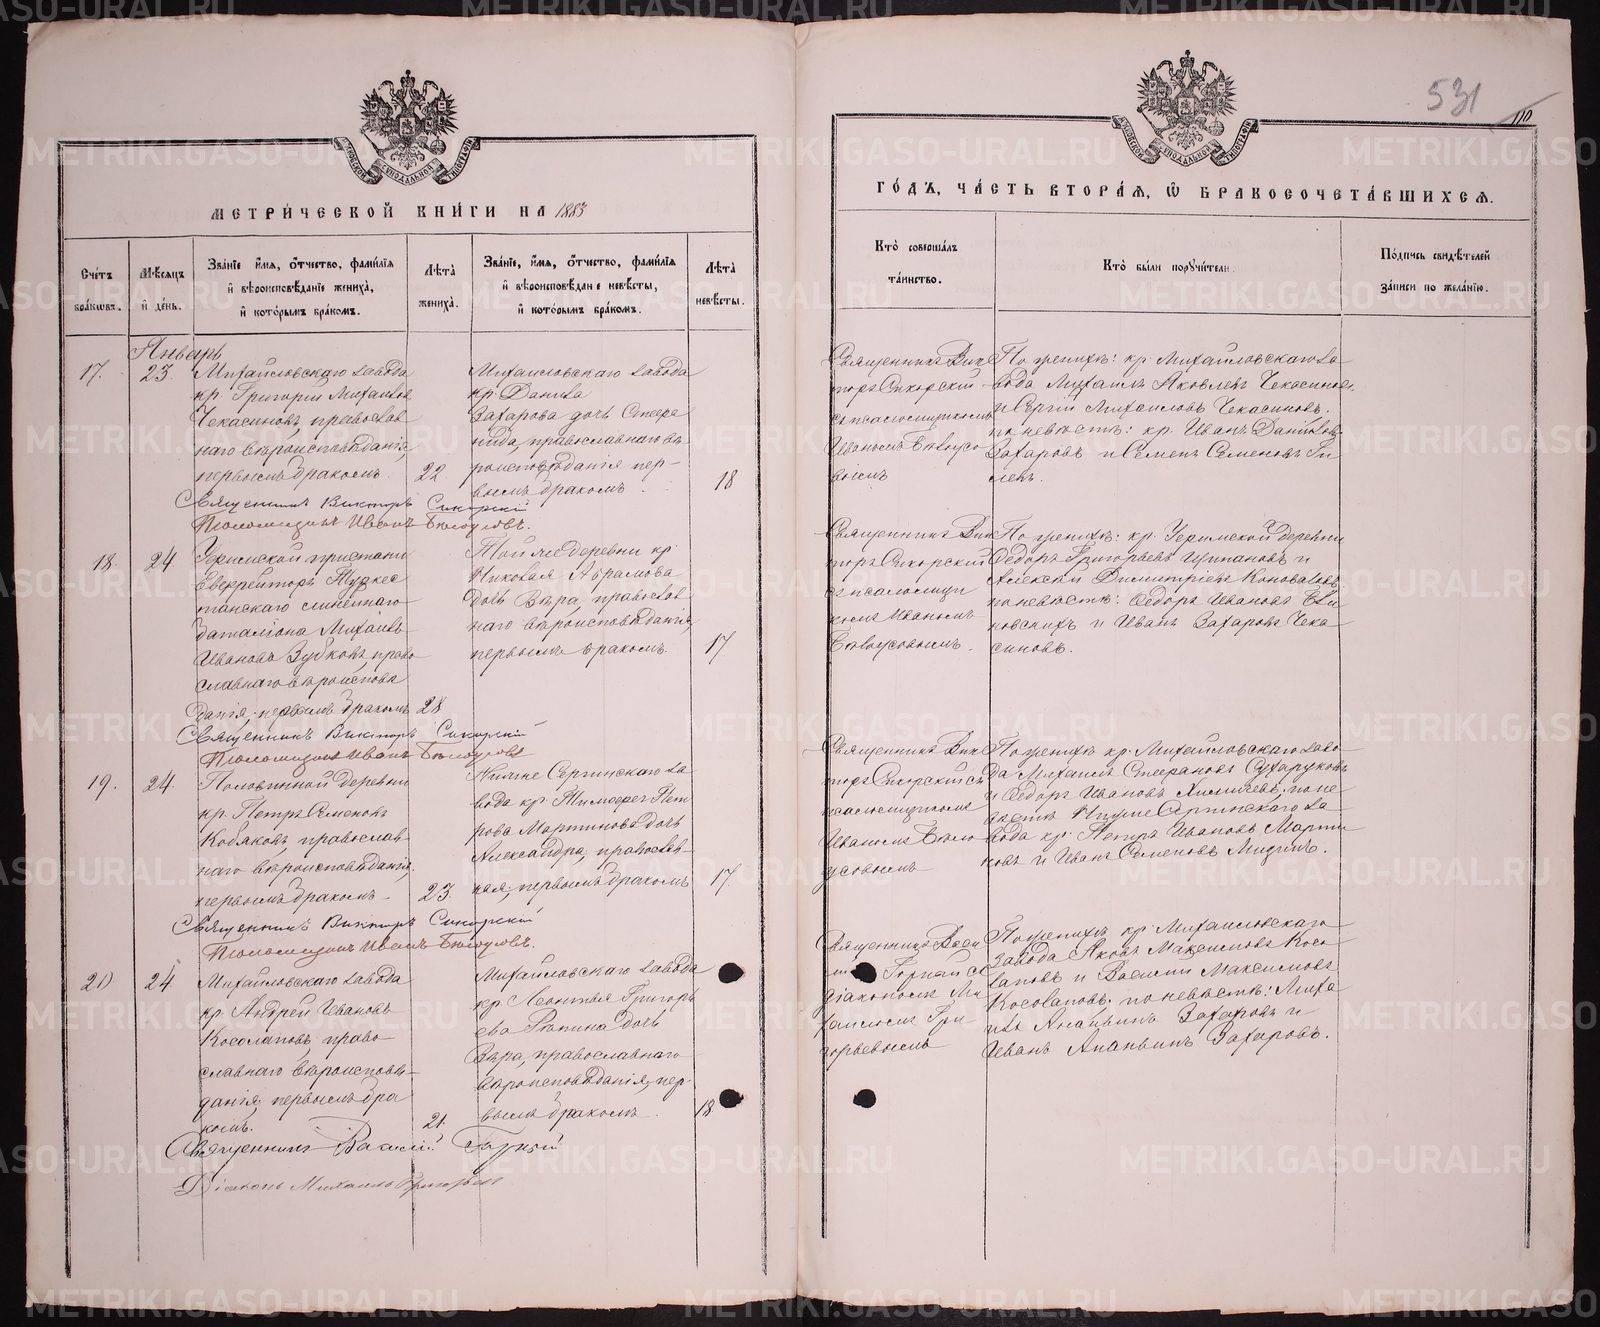 531
110
МОСКОВСКОЙ СѴНОДАЛЬНОЙ ТИПОГРАФІИ
МЕТРИ́ЧЕСКОЙ КНИ́ГИ НА 1883
Сче́тъ бра́кωвъ.
Мѣ́сяцъ и҆ де́нь.
Зва́нїе и҆́мя, о҆́тчество, фами́лїя и҆ вѣроисповѣ́данїе жениха̀, и҆ кото́рымъ бра́комъ.
Лѣ́та жениха̀.
Зва́нїе, и҆́мя, о҆́тчество, фами́лїя и҆ вѣроисповѣ́данїе невѣ́сты, и҆ кото́рымъ бра́комъ.
Лѣ́та невѣ́сты.
Январь
17.
23.
Михайловскаго завода
кр. Григорій Михаиловъ
Чекасиновъ, православ
наго вѣроисповѣданія,
первымъ бракомъ.
22
Михайловскаго завода
кр. Данила
Захарова дочь Степа
нида, православнаго вѣ
роисповѣданія пер-
вымъ бракомъ.
18
Священникъ Викторъ Сикорскій
Псаломщикъ Иванъ Бѣлоусовъ.
18.
24
Уфимской пристани
Ефрейторъ Туркес
танскаго линейнаго
баталіона Михаилъ
Ивановъ Зубковъ, право
славнаго вѣроисповѣ
данія, первымъ бракомъ
28
Той же деревни кр.
Николая Абрамова
дочь Вѣра, православ
наго вѣроисповѣданія,
первымъ бракомъ.
17
Священникъ Викторъ Сикорскій
Псаломщикъ Иванъ Бѣлоусовъ
19.
24.
Половинной деревни
кр. Петръ Семеновъ
Кобяковъ, православ-
наго вѣроисповѣданія,
первымъ бракомъ.
23.
Нижне Сергинскаго за
вода кр. Тимофея Пет
рова Мартинова дочь
Александра, православ-
ная, первымъ бракомъ
17.
Священникъ Викторъ Сикорскій
Псаломщикъ Иванъ Бѣлоусовъ.
20
24
Михайловскаго завода
кр. Андрей Ивановъ
Косолаповъ право-
славнаго вѣроисповѣ-
данія, первымъ бра
комъ.
21.
Михайловскаго завода
кр. Леонтья Григорь
ева Рюпина дочь
Вѣра, православнаго
вѣроисповѣданія, пер-
вымъ бракомъ.
18
Священникъ Василій Горный
Діаконъ Михаилъ Григорьевъ
ГО́ДЪ, ЧА́СТЬ ВТОРА́Я, Ѡ҆ БРАКОСОЧЕТА́ВШИХСЯ.
Кто̀ соверша́лъ та́инство.
Кто̀ бы́ли пору́чители.
По́дпись свидѣ́телей за́писи по жела́нїю.
Священникъ Вик
торъ Сикорскій
съ псаломщикомъ
Иваномъ Бѣлоусо
вымъ
По женихѣ: кр. Михайловскаго за
вода Михаилъ Яковлевъ Чекасиновъ
и Сергій Михаиловъ Чекасиновъ.
по невѣстѣ: кр. Иванъ Даниловъ
Захаровъ и Семенъ Семеновъ
Священникъ Вик
торъ Сикорскій
съ псаломщи
комъ Иваномъ
Бѣлоусовымъ.
По женихѣ: кр. Уфимской деревни
Ѳедоръ Григорьевъ Щипановъ и
Алексѣй Димитріевъ Коноваловъ
по невѣстѣ: Ѳедоръ Ивановъ
и Иванъ Захаровъ Чека
синовъ.
Священникъ Вик
торъ Сикорскій съ
псаломщикомъ
Иваномъ Бѣло
усовымъ
По женихѣ кр. Михайловскаго заво
да Михаилъ Степановъ Сухаруковъ
и Ѳедоръ Ивановъ по не
вѣстѣ Нижне Сергинскаго за
вода кр. Петръ Ивановъ Марти
новъ и Иванъ Семеновъ
Священникъ Васи
лій Горный съ
діакономъ Ми
хаиломъ Гри
горьевымъ
По женихѣ кр. Михайловскаго
завода Яковъ Максимовъ Косо
лаповъ и Василій Максимовъ
Косолаповъ. по невѣстѣ: Миха
илъ Ананьинъ Захаровъ и
Иванъ Ананьинъ Захаровъ.
METRIKI.GASO-URAL.RU